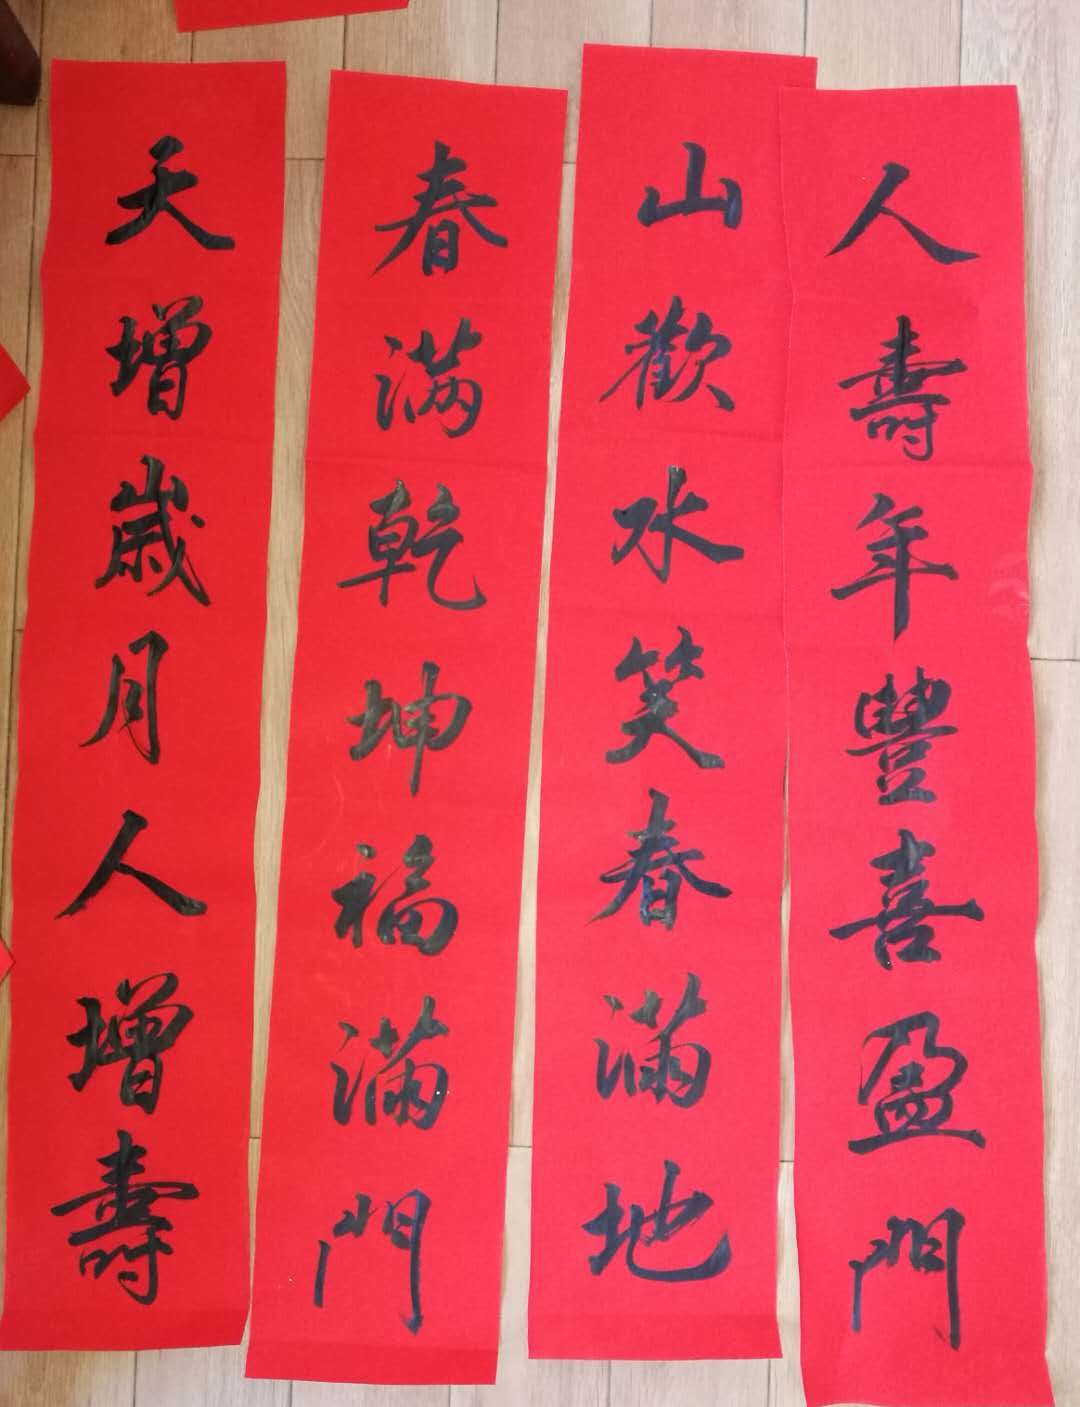 天增歲月人增壽
春满乾坤福滿門
山歡水笑春滿地
人壽年豐喜盈門